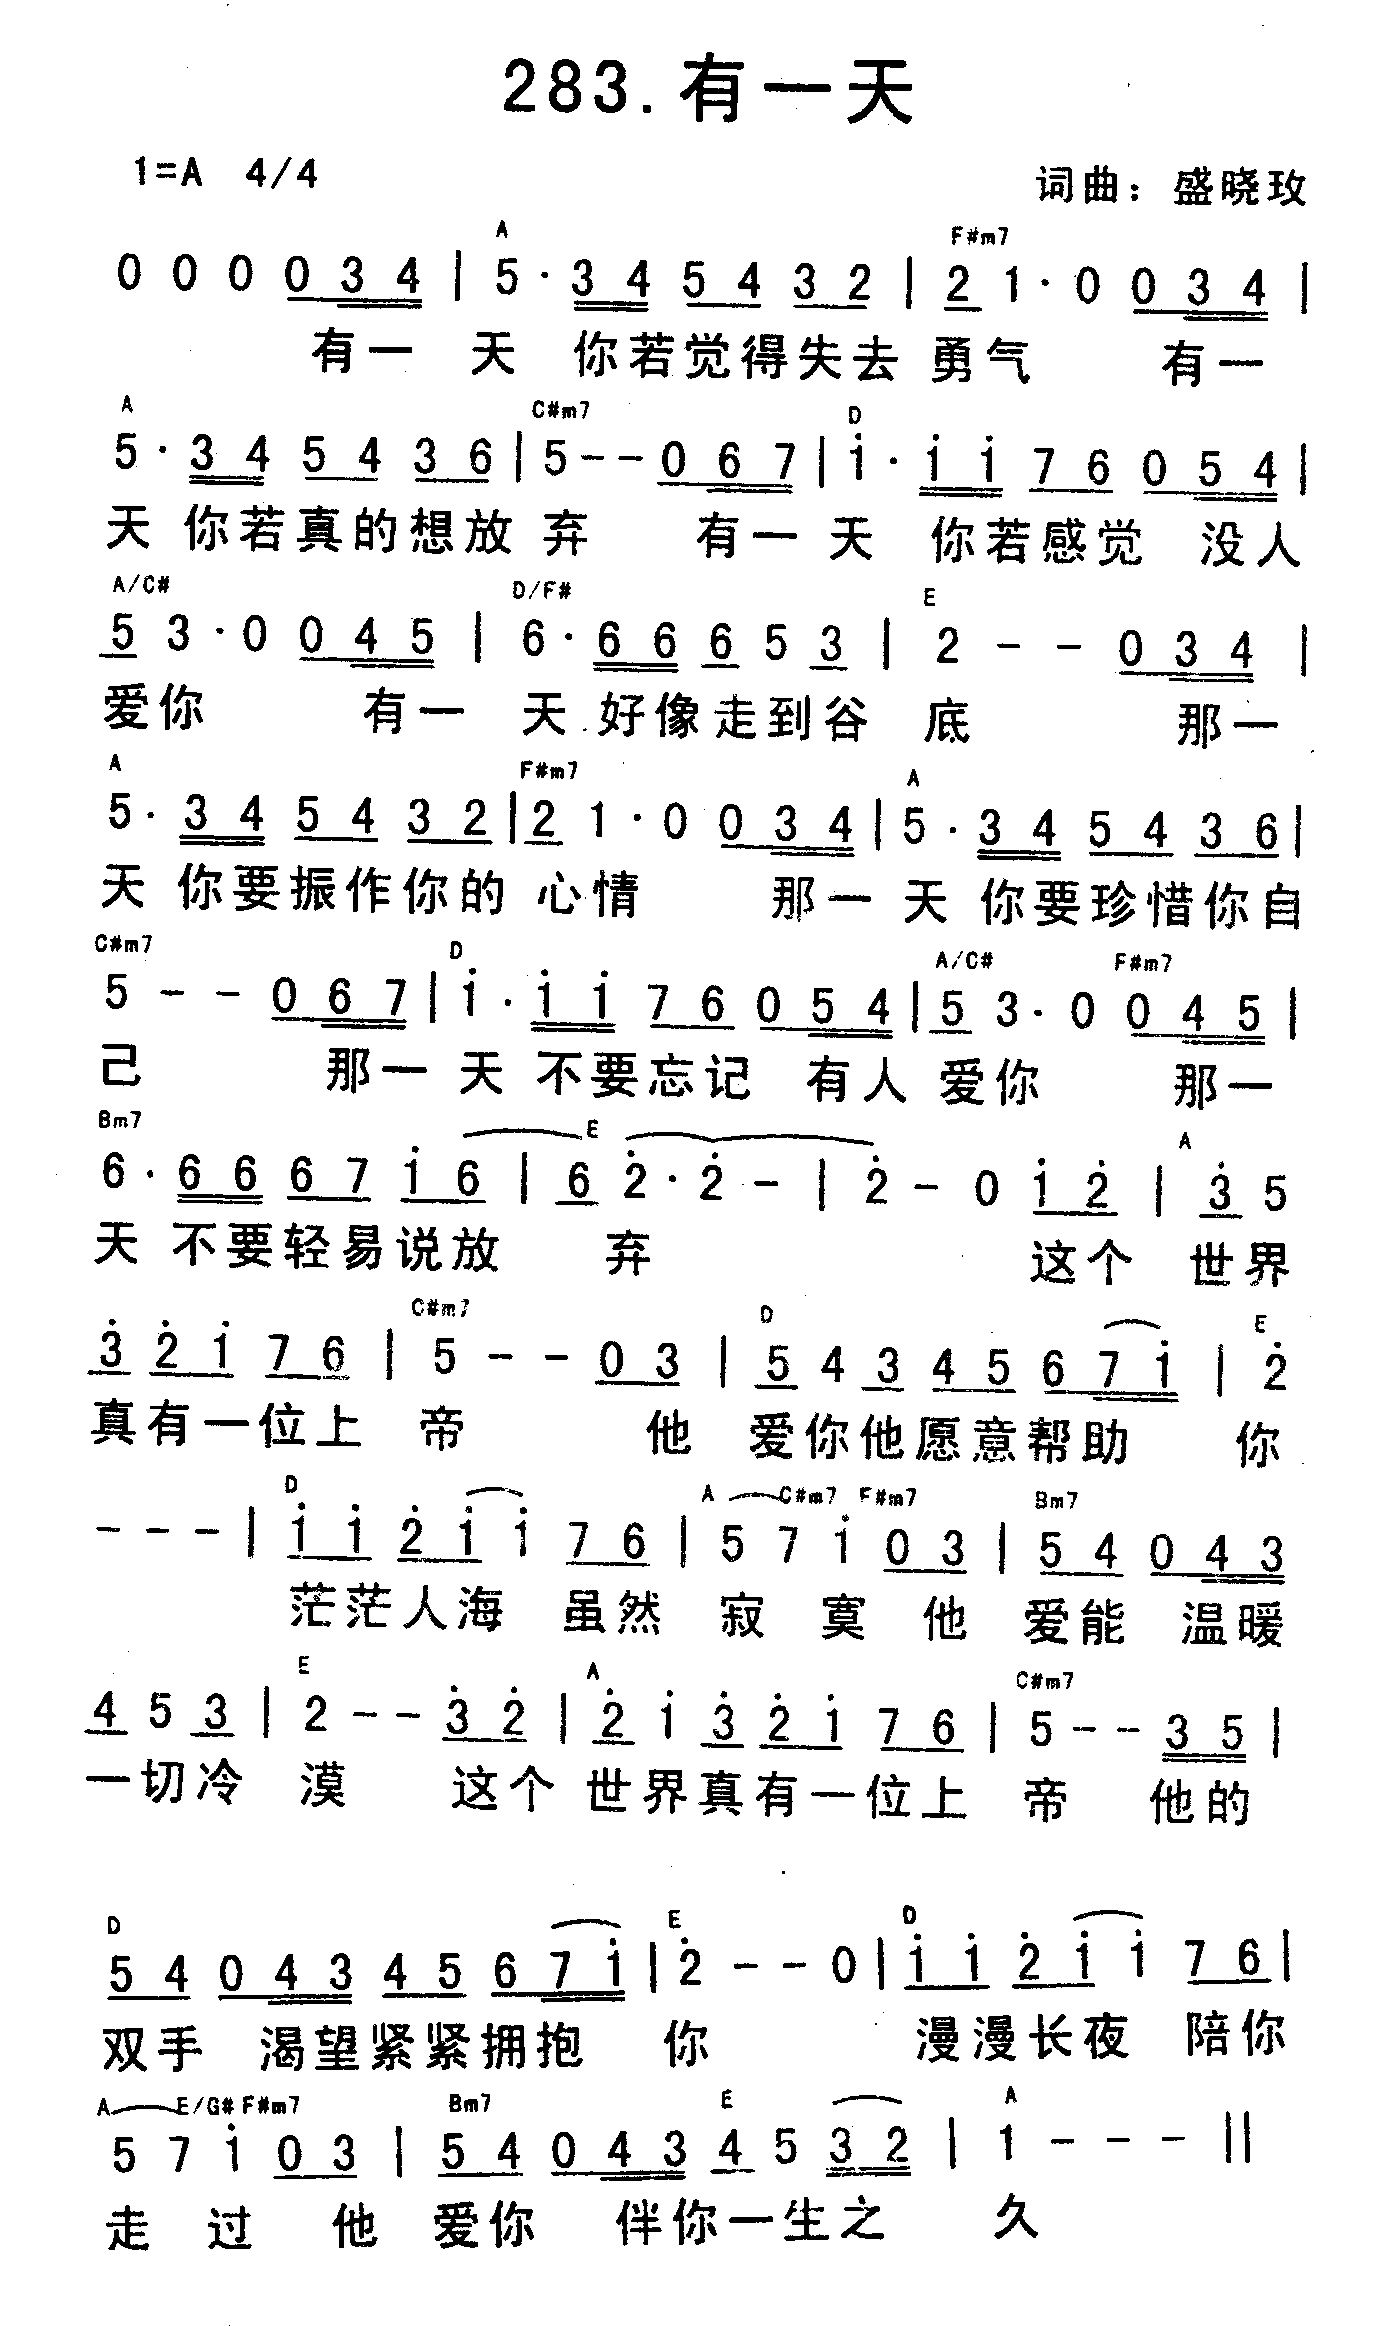 283.有一天
1=A 4/4
词曲：盛晓玫
A F#m7
0 0 0 0 3 4 | 5 · 3 4 5 4 3 2 | 2 1 · 0 0 3 4 |
有一 天 你若觉得失去 勇气 有一
A C#m7 D
5 · 3 4 5 4 3 6 | 5 - - 0 6 7 | i · i i 7 6 0 5 4 |
天 你若真的想放 弃 有一 天 你若感觉 没人
A/C# D/F# E
5 3 · 0 0 4 5 | 6 · 6 6 6 5 3 | 2 - - 0 3 4 |
爱你 有一 天 好像走到谷 底 那一
A F#m7 A
5 · 3 4 5 4 3 2 | 2 1 · 0 0 3 4 | 5 · 3 4 5 4 3 6 |
天 你要振作你的 心情 那一 天 你要珍惜你自
C#m7 D A/C# F#m7
5 - - 0 6 7 | i · i i 7 6 0 5 4 | 5 3 · 0 0 4 5 |
己 那一 天 不要忘记 有人 爱你 那一
Bm7 E A
6 · 6 6 6 7 i 6 | 6 2̇ · 2̇ - | 2̇ - 0 i 2̇ | 3̇ 5
天 不要轻易说放 弃 这个 世界
C#m7 D E
3̇ 2̇ i 7 6 | 5 - - 0 3 | 5 4 3 4 5 6 7 i | 2̇
真有一位上 帝 他 爱你他愿意帮助 你
D A C#m7 F#m7 Bm7
- - - | i i 2̇ i i 7 6 | 5 7 i 0 3 | 5 4 0 4 3
茫茫人海 虽然 寂 寞 他 爱能 温暖
E A C#m7
4 5 3 | 2 - - 3̇ 2̇ | 2̇ i 3̇ 2̇ i 7 6 | 5 - - 3 5 |
一切冷 漠 这个 世界真有一位上 帝 他的
D E D
5 4 0 4 3 4 5 6 7 i | 2̇ - - 0 | i i 2̇ i i 7 6 |
双手 渴望紧紧拥抱 你 漫漫长夜 陪你
A E/G# F#m7 Bm7 E A
5 7 i 0 3 | 5 4 0 4 3 4 5 3 2 | 1 - - - ||
走 过 他 爱你 伴你一生之 久